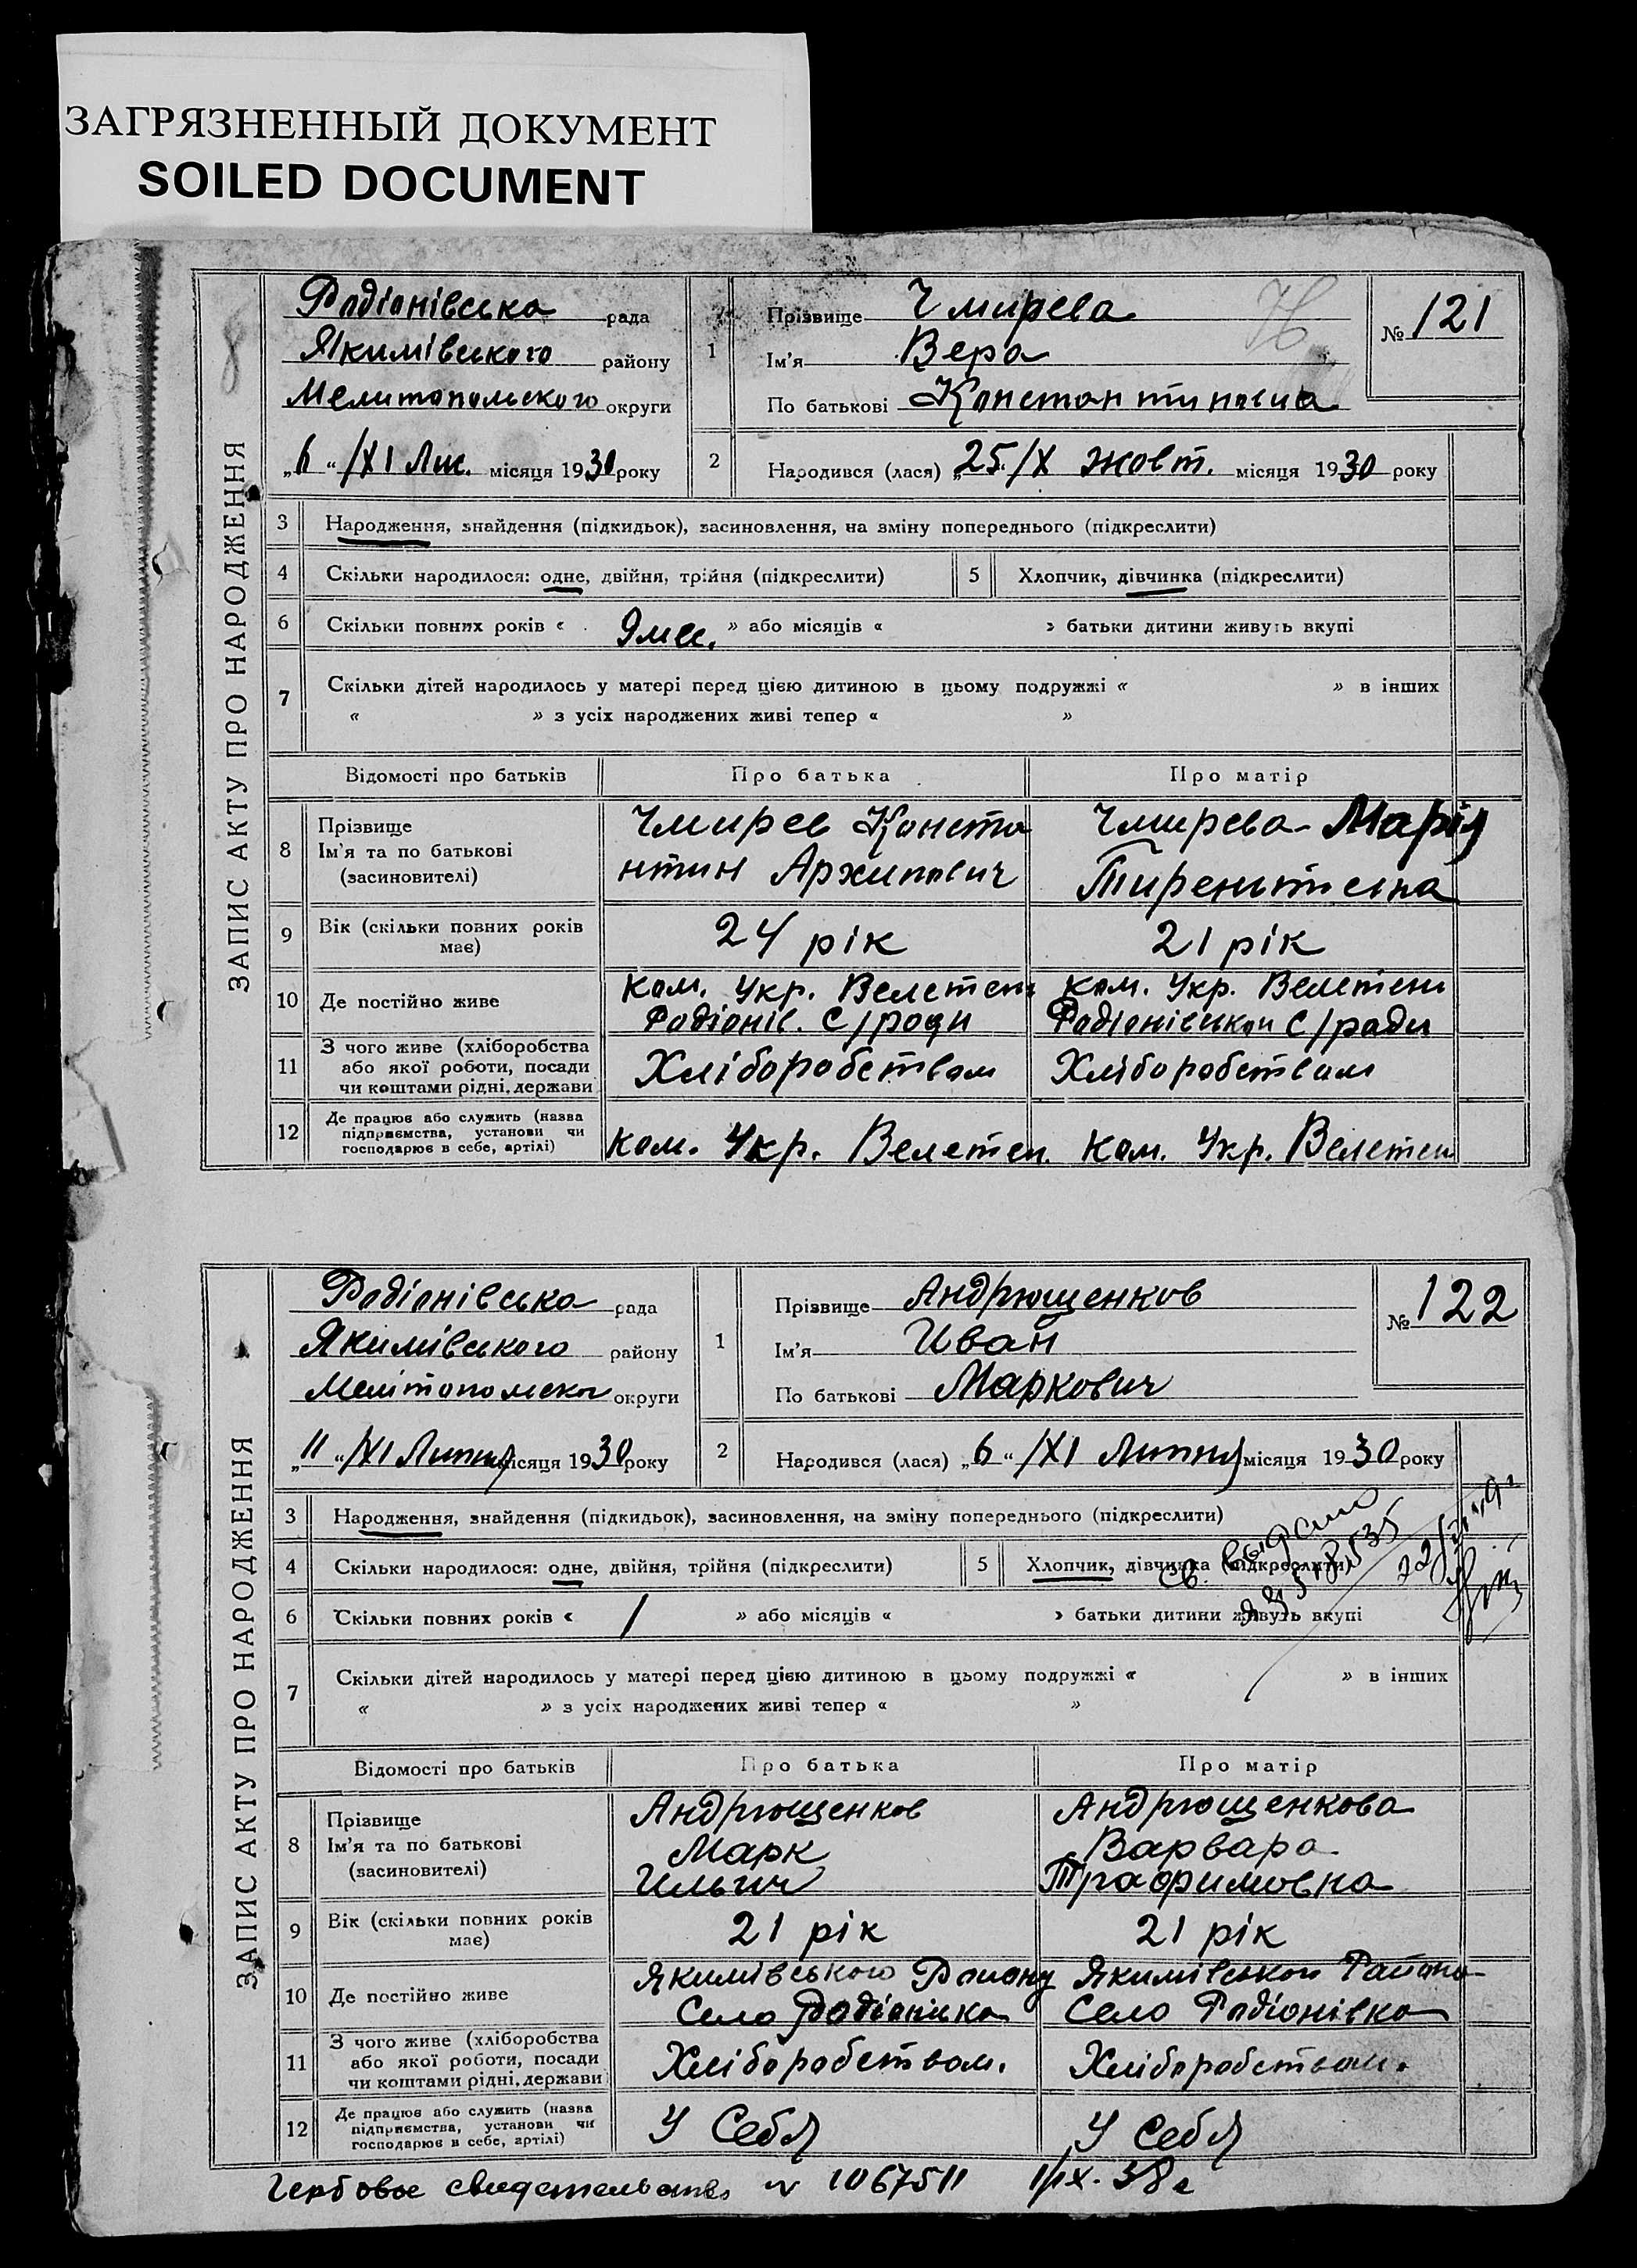 ЗАГРЯЗНЕННЫЙ ДОКУМЕНТ
SOILED DOCUMENT
ЗАПИС АКТУ ПРО НАРОДЖЕННЯ
8
Радіонівська рада
Якимівського району
Мелитопольского округи
„6“ /XI Лис. місяця 1930 року
1
Прізвище Чмирева
Ім'я Вера
По батькові Константиновна
№ 121
2
Народився (лася) „25./X жовт. місяця 1930 року
3 Народження, знайдення (підкидьок), засиновлення, на зміну попереднього (підкреслити)
4 Скільки народилося: одне, двійня, трійня (підкреслити)
5 Хлопчик, дівчинка (підкреслити)
6 Скільки повних років « 9 мес. » або місяців « » батьки дитини живуть вкупі
7 Скільки дітей народилось у матері перед цією дитиною в цьому подружжі « » в інших
« » з усіх народжених живі тепер « »
Відомості про батьків Про батька Про матір
8 Прізвище
Ім'я та по батькові
(засиновителі)
Чмирев Конста
нтин Архипович
Чмирева Марія
Тирентиевна
9 Вік (скільки повних років
має)
24 рік
21 рік
10 Де постійно живе
Ком. Укр. Велетень
Радіонів. С/ради
Ком. Укр. Велетень
Радіонівськои С/ради
11 З чого живе (хліборобства
або якої роботи, посади
чи коштами рідні, держави
Хліборобством
Хліборобством
12 Де працює або служить (назва
підприємства, установи чи
господарює в себе, артілі)
Ком. Укр. Велетен.
Ком. Укр. Велетен
ЗАПИС АКТУ ПРО НАРОДЖЕННЯ
Радіонівська рада
Якимівського району
Мелітопольског округи
„11“ /XI Липня місяця 1930 року
1
Прізвище Андрющенков
Ім'я Иван
По батькові Маркович
№ 122
2
Народився (лася) „6“ /XI Липня місяця 1930 року
3 Народження, знайдення (підкидьок), засиновлення, на зміну попереднього (підкреслити)
4 Скільки народилося: одне, двійня, трійня (підкреслити)
5 Хлопчик, дівчинка (підкреслити)
Св. выдано
6 Скільки повних років « 1 » або місяців « » батьки дитини живуть вкупі
7 Скільки дітей народилось у матері перед цією дитиною в цьому подружжі « » в інших
« » з усіх народжених живі тепер « »
Відомості про батьків Про батька Про матір
8 Прізвище
Ім'я та по батькові
(засиновителі)
Андрющенков
Марк
Ильич
Андрющенкова
Варвара
Трафимовна
9 Вік (скільки повних років
має)
21 рік
21 рік
10 Де постійно живе
Якимівського Району
Село Радіонівка
Якимівськои Района
Село Радіонівка
11 З чого живе (хліборобства
або якої роботи, посади
чи коштами рідні, держави
Хліборобством.
Хліборобством.
12 Де працює або служить (назва
підприємства, установи чи
господарює в себе, артілі)
У Себя
У Себя
Гербовое свидетельство № 1067511 1/IX-38 г